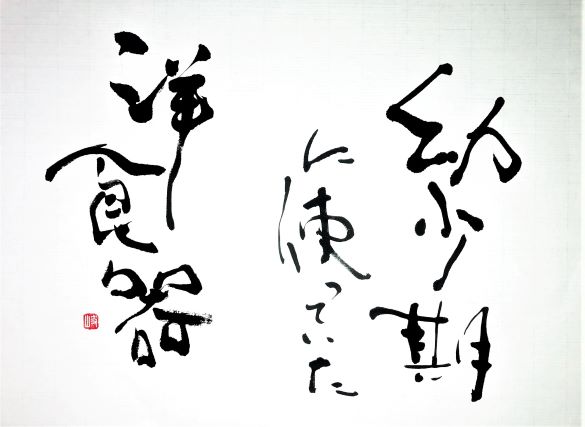 幼少期
に使っていた
洋食器